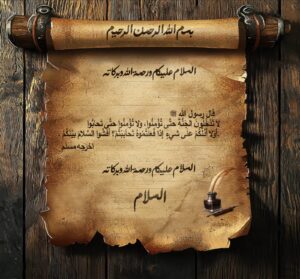 بسم الله الرحمن الرحيم
السلام عليكم ورحمة الله وبركاته
قال رسول الله ﷺ
لا تدخلون الجنة حتى تؤمنوا، ولا تؤمنوا حتى تحابوا
أولا أدلكم على شيء إذا فعلتموه تحاببتم؟ أفشوا السلام بينكم
اخرجه مسلم
السلام عليكم ورحمة الله وبركاته
السلام